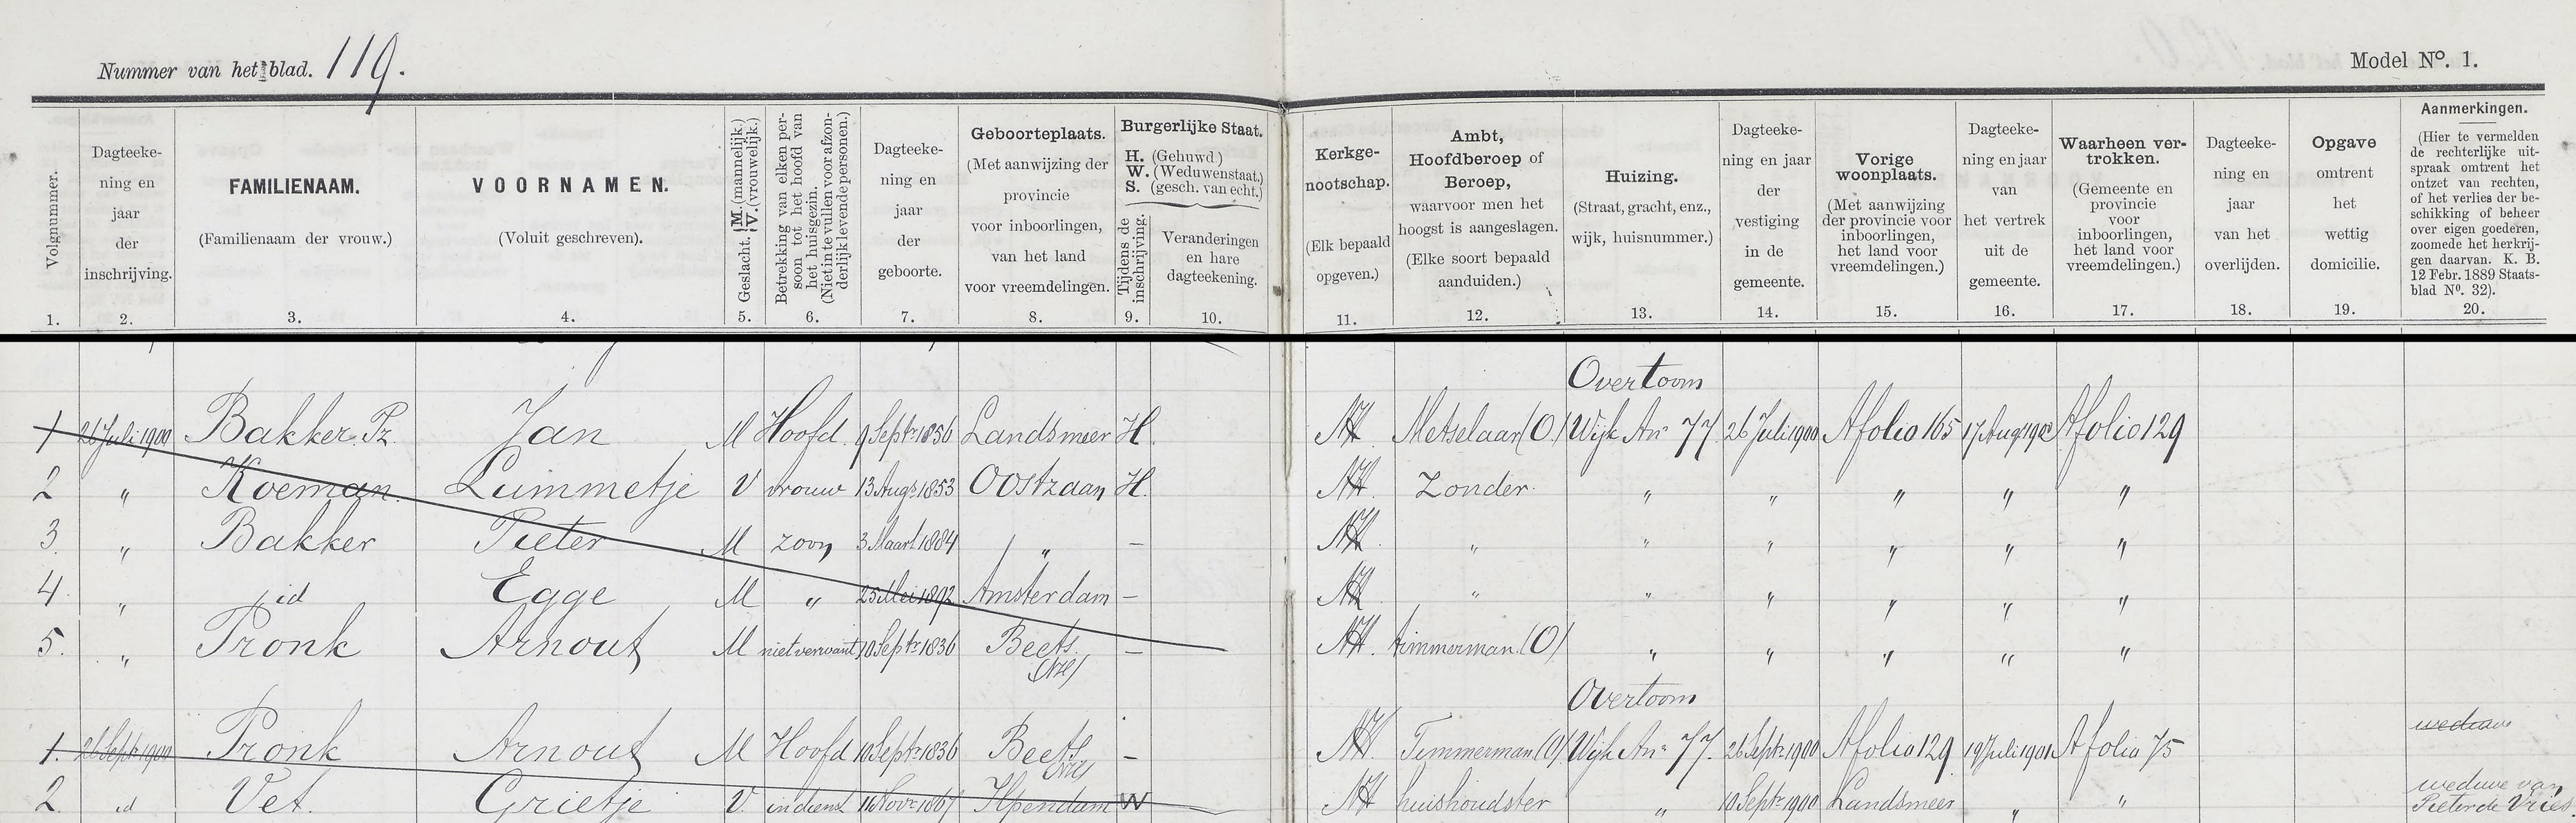 Nummer van het blad. 119.
Model No. 1.
Volgnummer.
1.
Dagteeke-
ning en
jaar
der
inschrijving.
2.
FAMILIENAAM.
(Familienaam der vrouw.)
3.
VOORNAMEN.
(Voluit geschreven).
4.
Geslacht. {M. (mannelijk.) V. (vrouwelijk.)
5.
Betrekking van elken per-
soon tot het hoofd van
het huisgezin.
(Niet in te vullen voor afzon-
derlijk levende personen.)
6.
Dagteeke-
ning en
jaar
der
geboorte.
7.
Geboorteplaats.
(Met aanwijzing der
provincie
voor inboorlingen,
van het land
voor vreemdelingen.
8.
Burgerlijke Staat.
H. (Gehuwd)
W. (Weduwenstaat.)
S. (gesch. van echt.)
Tijdens de
inschrijving.
9.
Veranderingen
en hare
dagteekening.
10.
Kerkge-
nootschap.
(Elk bepaald
opgeven.)
11.
Ambt,
Hoofdberoep of
Beroep,
waarvoor men het
hoogst is aangeslagen.
(Elke soort bepaald
aanduiden.)
12.
Huizing.
(Straat, gracht, enz.,
wijk, huisnummer.)
13.
Dagteeke-
ning en jaar
der
vestiging
in de
gemeente.
14.
Vorige
woonplaats.
(Met aanwijzing
der provincie voor
inboorlingen,
het land voor
vreemdelingen.)
15.
Dagteeke-
ning en jaar
van
het vertrek
uit de
gemeente.
16.
Waarheen ver-
trokken.
(Gemeente en
provincie
voor
inboorlingen,
het land voor
vreemdelingen.)
17.
Dagteeke-
ning en
jaar
van het
overlijden.
18.
Opgave
omtrent
het
wettig
domicilie.
19.
Aanmerkingen.
(Hier te vermelden
de rechterlijke uit-
spraak omtrent het
ontzet van rechten,
of het verlies der be-
schikking of beheer
over eigen goederen,
zoomede het herkrij-
gen daarvan. K. B.
12 Febr. 1889 Staats-
blad No. 32).
20.
Overtoom
1 26 Juli 1900 Bakker Pz. Jan M Hoofd 9 Septr 1856 Landsmeer H. NH Metselaar (O) Wijk A no 77 26 Juli 1900 A folio 165 17 Aug 1900 A folio 129
2 " Koeman Luimmetje V vrouw 13 Augs 1853 Oostzaan H. NH. Zonder " " " " "
3. " Bakker Pieter M zoon 3 Maart 1884 " - NH. " " " " " "
4. " id Egge M " 25 Mei 1892 Amsterdam - NH " " " " " "
5. " Pronk Arnout M niet verwant 10 Septr 1836 Beets - NH. timmerman (O) " " " " "
(NH)
Overtoom
1. 26 Septr 1900 Pronk Arnout M Hoofd 10 Septr 1836 Beets - NH Timmerman (O) Wijk A no 77. 26 Septr 1900 A folio 129 19 Juli 1901 A folio 75 weduwe
(NH)
2. id Vet. Grietje V. in dienst 11 Novr 1867 Ilpendam W NH huishoudster " 10 Septr 1900 Landsmeer " " weduwe van
Pieter de Vries